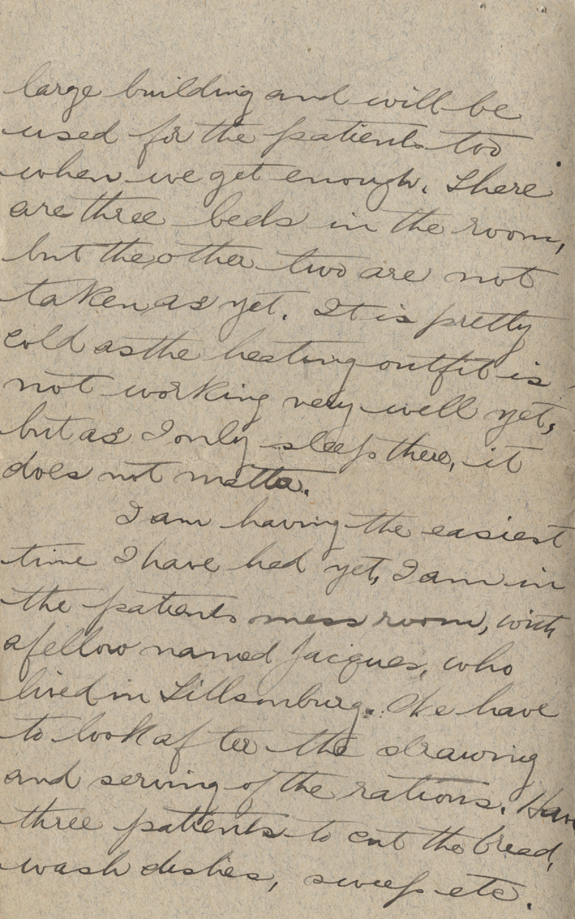 large building and will be
used for the patients too
when we get enough. There
are three beds in the room,
but the other two are not
taken as yet. It is pretty
cold as the heating outfit is
not working very well yet,
but as I only sleep there, it
does not matter.
I am having the easiest
time I have had yet, I am in
the patients mess room, with
a fellow named Jacques, who
lived in Tillsonburg. We have
to look after the drawing
and serving of the rations. Have
three patients to cut the bread,
wash dishes, sweep etc.